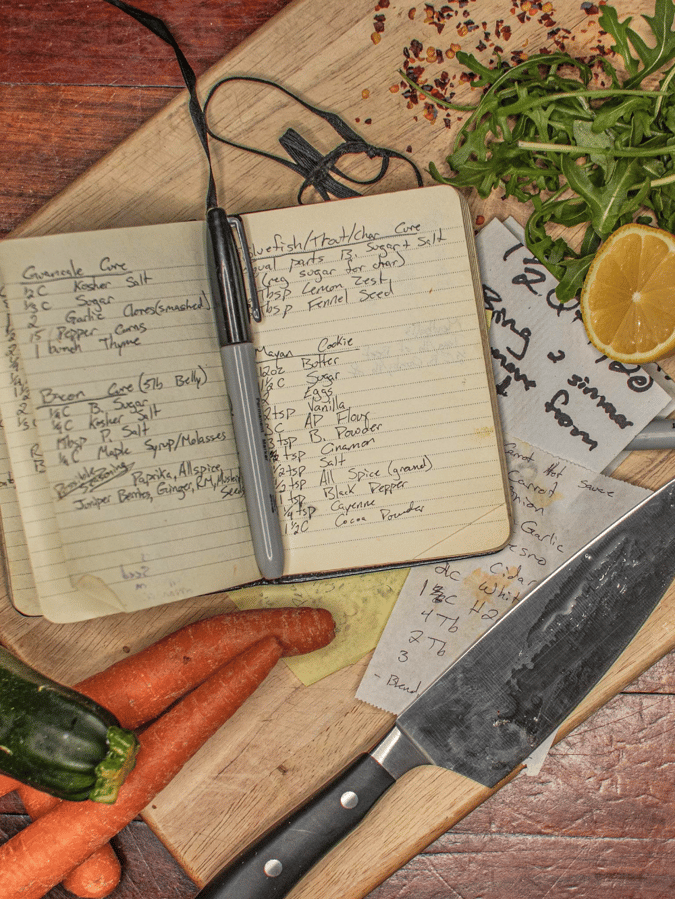 Guanciale Cure
½C Kosher Salt
⅓C Sugar
2 Garlic Cloves (smashed)
15 Pepper Corns
1 bunch Thyme
Bacon Cure (5lb Belly)
¼C B. Sugar
¼C Kosher Salt
P. Salt
¼C Maple Syrup/Molasses
Possible Seasoning
Paprika, Allspice,
Juniper Berries, Ginger, RM,
Seeds
luefish/Trout/Char Cure
qual parts B. Sugar + Salt
(reg sugar for char)
Tbsp Lemon Zest
Tbsp Fennel Seed
Mayan Cookie
12oz Butter
1½C Sugar
2 Eggs
2tsp Vanilla
3C AP Flour
tsp B. Powder
tsp Cinamon
½tsp Salt
½tsp All Spice (ground)
1tsp Black Pepper
¼tsp Cayenne
1½C Cocoa Powder
Carrot Hot Sauce
Carrot
nion
Garlic
Cider
2C White
H2
4 Tb
2 Tb
3
- Blend